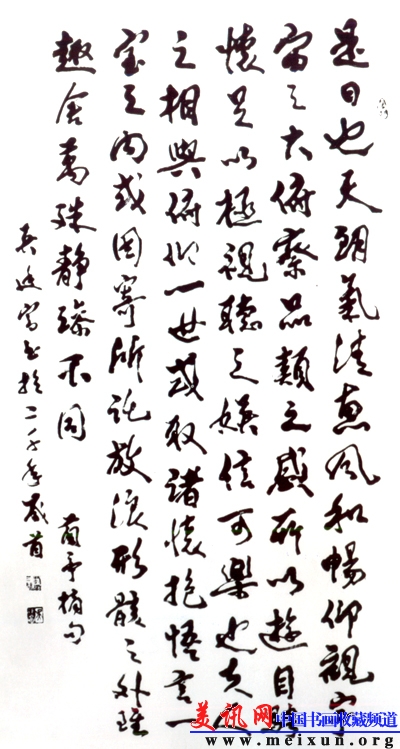 是日也天朗氣清惠風和暢仰觀宇
宙之大俯察品類之盛所以遊目騁
懷足以極視聽之娛信可樂也夫人
之相與俯仰一世或取諸懷抱悟言一
室之內或因寄所託放浪形骸之外雖
趣舍萬殊靜躁不同 蘭亭摘句
書於二千年歲首
美讯网 中国书画收藏频道
www.meixun.org